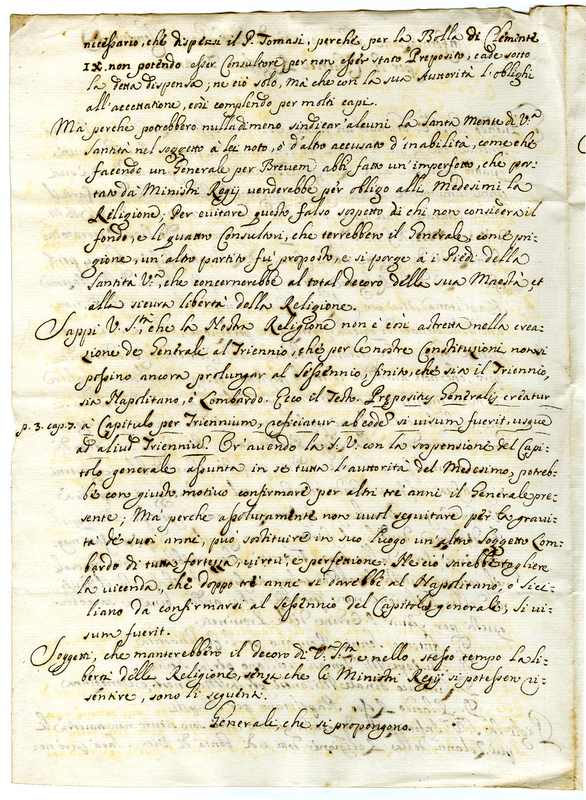 necessario, che dispensi il P. Tomasi, perche per la Bolla di Clemente
IX. non potendo esser Consultore per non esser stato Preposito, cade sotto
la detta dispensa; ne ciò solo, mà che con la sua Autorità l'oblighi
all'accettatione, così complendo per molti capi.
Mà perche potrebbero nulladimeno sindicar alcuni la Santa Mente di V.ª
Santità nel soggetto à lei noto, ò d'altro accusato d'inabilità, come che
facendo un Generale per Brevem abbi fatto un'imperfetto, che por-
tato da Ministri Regij venderebbe per obligo alli Medesimi la
Religione; Per evitare questo falso sospetto di chi non considera il
fondo, e li quattro Consultori, che terrebbero il Generale, come pri-
gione, un'altro partito fui proposto, e si porge à i Piedi della
Santità V.ª, che concernerebbe al total decoro delle sua Maestà et
alla sicura libertà della Religione.
Sappi V. S.tà, che la Nostra Religione non è così astretta nella crea-
zione de Generale al Triennio, che per le nostre Constituzioni non si
possino ancora prolungar al sessennio, finito, che sia il Triennio,
sia Napolitano, ò Lombardo. Ecco il Testo. Prepositus Generalis creatur
p. 3. cap. 7. à Capitulo per Triennium, reficiatur ab eodem si visum fuerit, usque
ad aliud Triennium. Or'avendo la S. V. con la suspensione del Capi-
tolo generale assunta in se tutta l'autorità del Medesimo, potreb-
be con giusto motivo confirmare per altri trè anni il Generale pre-
sente; Mà perche assolutamente non vuol seguitare per la gravi-
tà de suoi anni, può sostituire in suo luogo un'altro Soggetto Lom-
bardo di tutta fortezza, virtù, e perfettione. Ne ciò sarebbe togliere
la vicenda, che doppo tre anni si darebbe al Napolitano, ò Sici-
liano da confirmarsi al sessennio del Capitolo generale, si vi-
sum fuerit.
Soggetti, che manterebbero il decoro di V. S.tà, e nello stesso tempo la li-
bertà della Religione, senza che li Ministri Regij si potessero ri-
sentire, sono li seguenti.
Generale, che si propongono.